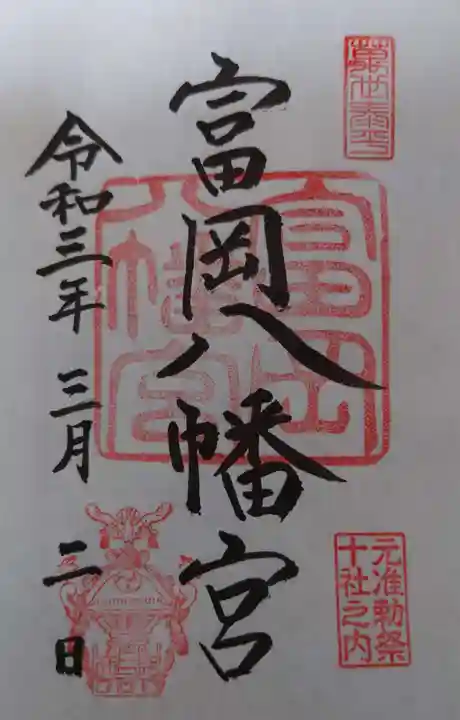 萬世泰平
富岡八幡宮
富岡八幡宮
元准勅祭
十社之内
令和三年三月二日